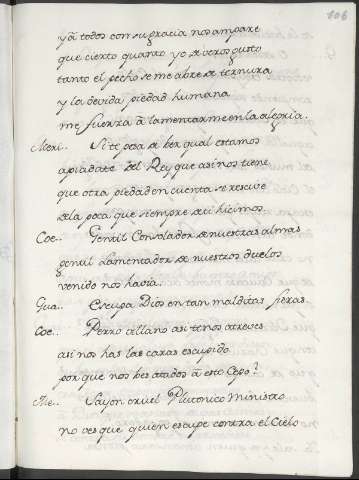 106
yà todos con su gracia nos ampare
que cierto quanto yo de veros gusto
tanto el pecho se me abre de ternura
y la devida piedad humana
me fuerza à lamentarme en la alegria.
Meri.. Si te pesa de ber qual estamos
apiadate del Rey que asi nos tiene
que otra piedad en cuenta se rescive
de la poca que siempre de ti hicimos.
Coe.. Gentil Consolador de nuestras almas
gentil Lamentador de nuestros duelos
venido nos havia.
Gua.. Escupa Dios en tan malditas fieras.
Coe.. Perro villano asi te nos atreves
asi nos has las caras escupido
por que nos bes atados à este Cepo?
Me.. Sayon cruel Plutonico Ministro
no ves que quien escupe contra el Cielo